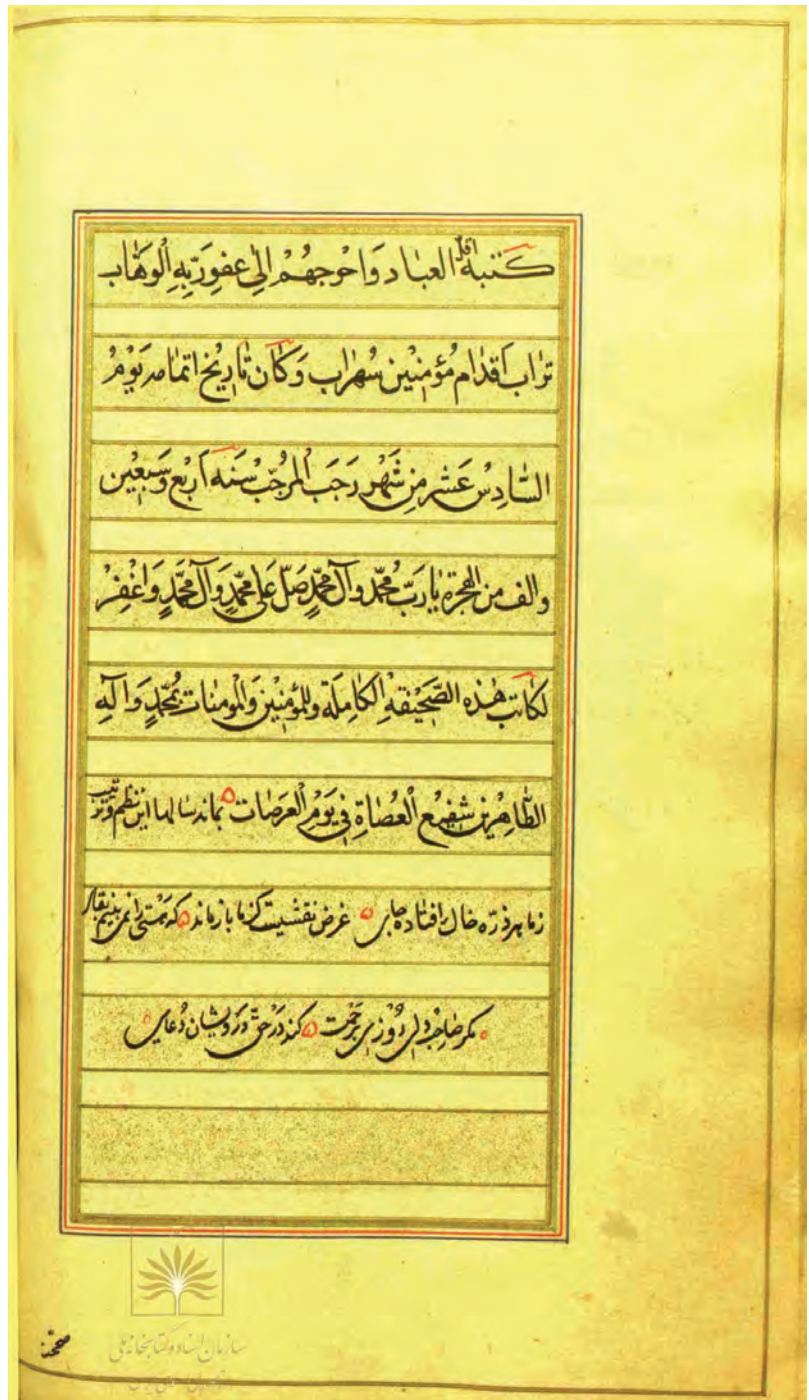 كَتَبهُ اقلّ العبٰاد وَاحْوَجهُمْ اِلىٰ عفوِرَبِّهِ اْلوهّٰاب
تُرٰاب اَقدٰام مُؤمِنيْن سُهرٰاب وَكٰان تٰاريْخ اتمٰامه يَوْمُ
السّٰادِسْ عَشر مِنْ شَهْرِ رَجَب المُرجّبْ سَنه اَربْع وَسَبعيْن
والف من الهجرة يٰا رَبّ مُحمّد وآل محمّدٍ صَلّ عَلىٰ محمّدٍ وَآل محمَّدٍ وَاغْفِرْ
لكٰاتب هٰذه الصَّحيْفهِ الكٰامِلَة وَللمؤمِنيْن وَالمومنٰات بمُحَمّدٍ وَآلهِ
الطّٰاهِريْن شَفيْع الْعُصٰاةِ فِي يَوْمِ الْعَرَصٰات ۵ بمٰاند سٰالها اين نظم وترتيب
زما هر ذرّه خاك افتٰاده جاى ۵ غرض نقشيست كز ما باز ماند ۵ كه هَستى را نمى بينم بقاى
۵ مكر صٰاحبدلى رُوْزى برحمت ۵ كند دَرْ حقّ دَرْويشان دُعاى ۵
صحفه
سازمان اسناد و کتابخانه ملی